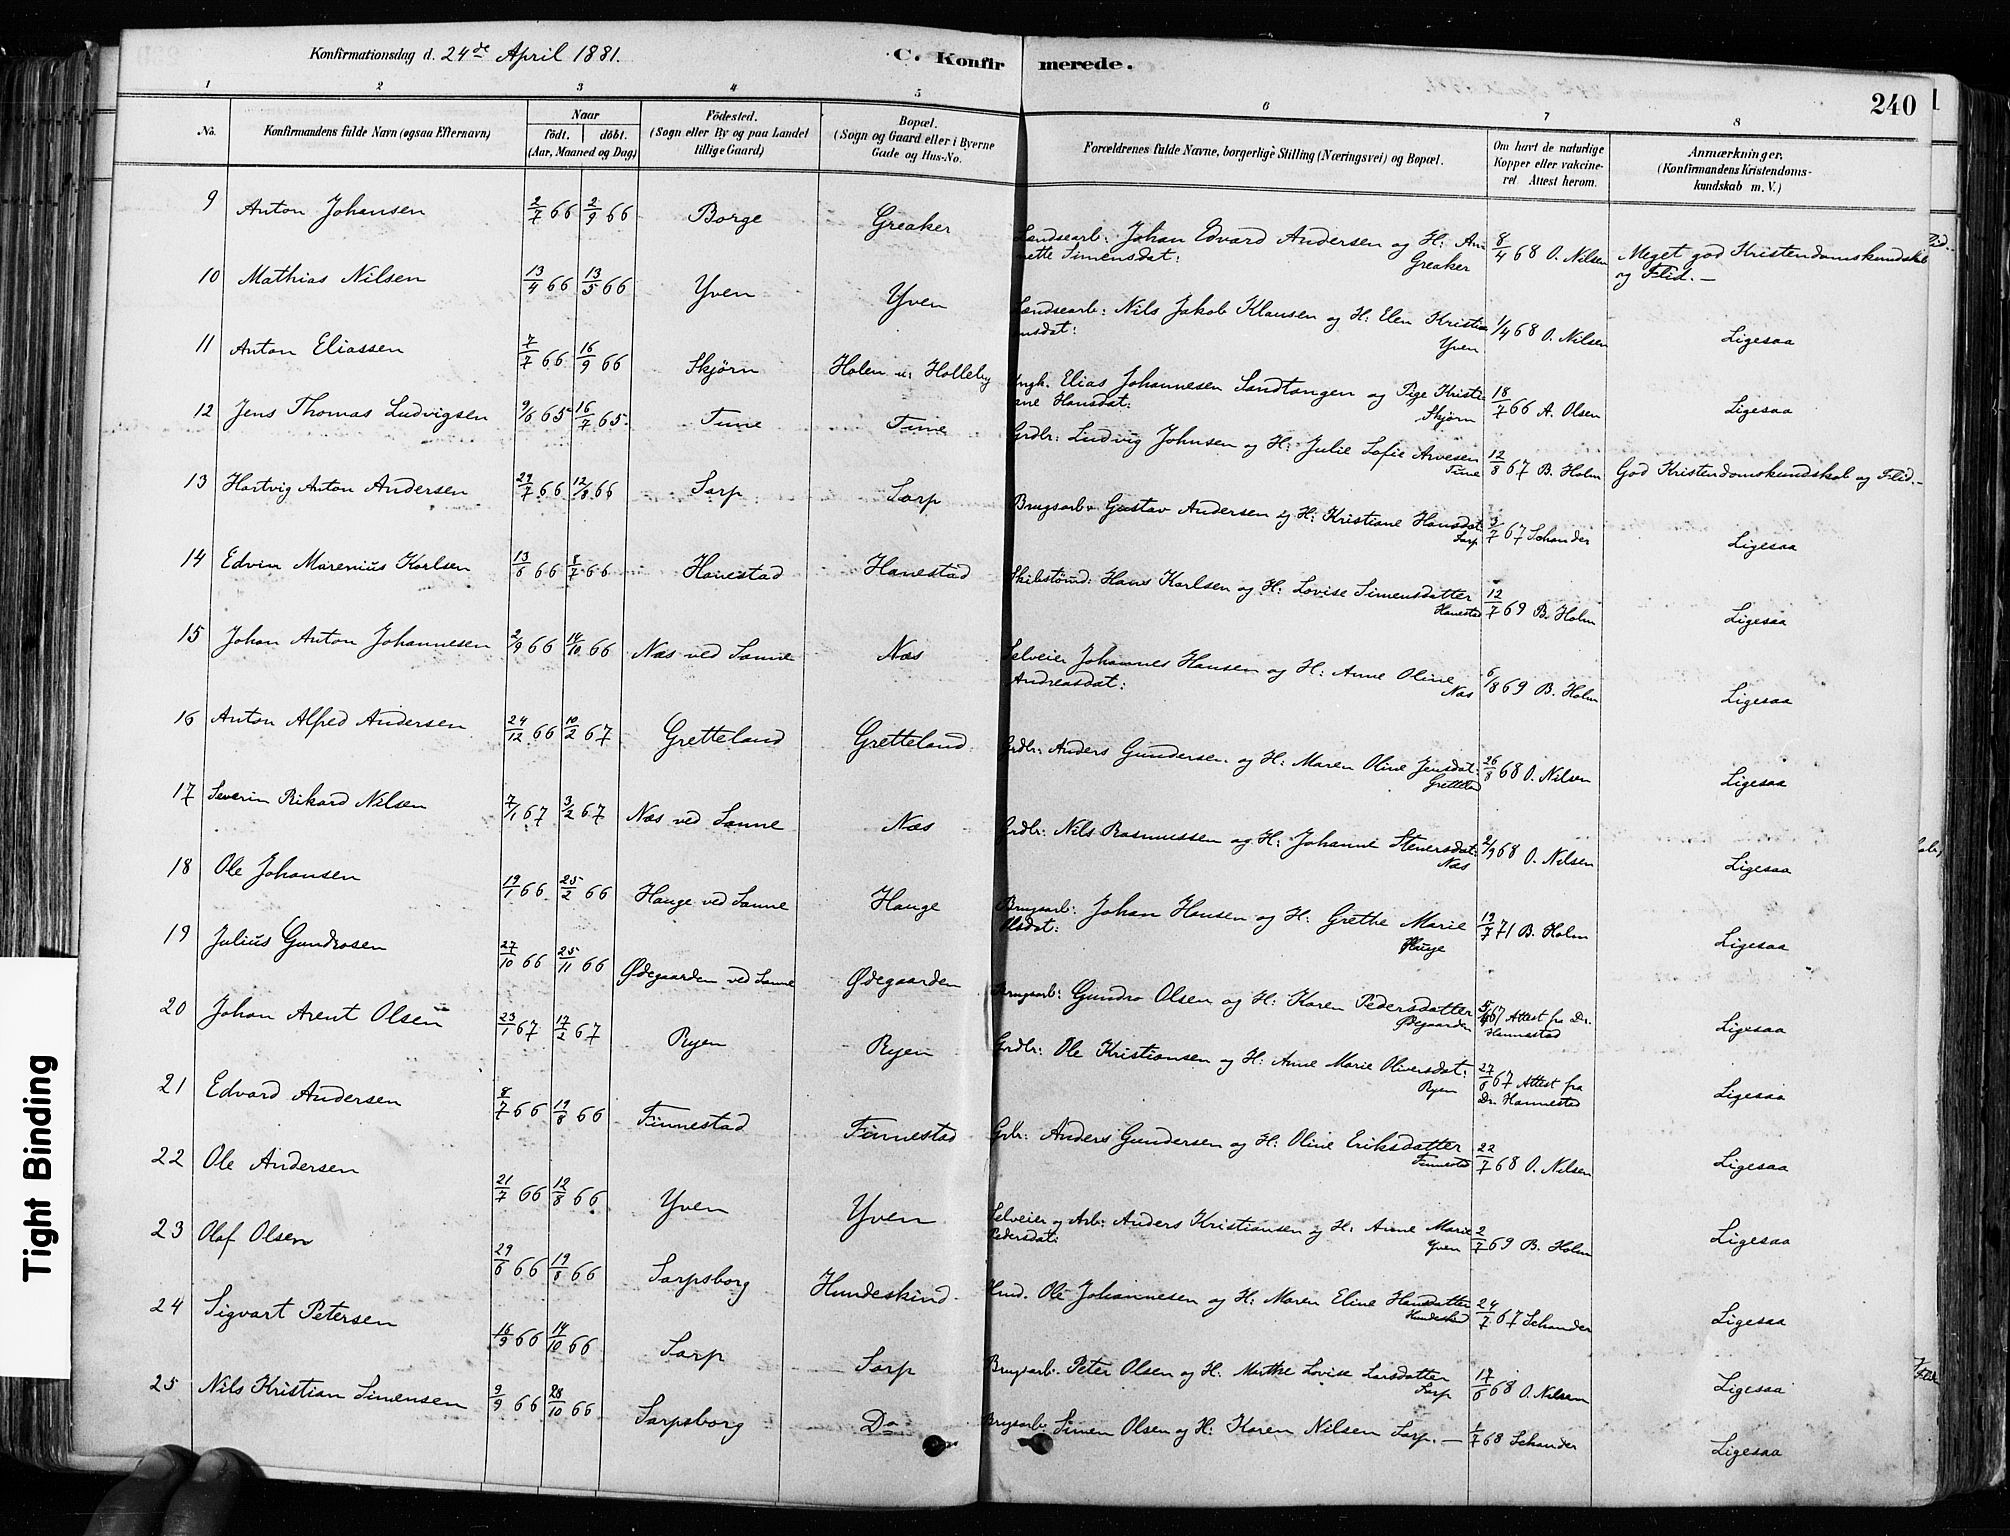 Konfirmationsdag d. 24de April 1881.
C. Konfirmerede.
240
1 2 3 4 5 6 7 8
No.
Konfirmandens fulde Navn (ogsaa Efternavn)
Naar
født. døbt.
(Aar, Maaned og Dag)
Fødested.
(Sogn eller By og paa Landet
tillige Gaard)
Bopæl.
(Sogn og Gaard eller i Byerne
Gade og Hus-No.
Forældrenes fulde Navne, borgerlige Stilling (Næringsvei) og Bopæl.
Om havt de naturlige
Kopper eller vakcine-
ret Attest herom.
Anmærkninger.
(Konfirmandens Kristendoms-
kundskab m. V.)
9 Anton Johansen 2/7 66 2/9 66 Borge Greaker Landsearb: Johan Edvard Andersen og H: An-
nette Simensdat: Greaker 8/4 68 O. Nilsen Meget god Kristendomskundskab
og Flid. —
10 Mathias Nilsen 13/4 66 13/5 66 Yven Yven Landsearb: Nils Jakob Klausen og H: Elen Kristia
nsdat: Yven 1/4 68 O. Nilsen Ligesaa
11 Anton Eliassen 7/7 66 16/9 66 Skjørn Holen u: Holleby Ungk. Elias Johannesen Sandtangen og Pige Kristi
ane Hansdat: Skjørn 18/7 66 A. Olsen Ligesaa
12 Jens Thomas Ludvigsen 9/6 65 16/7 65 Tune Tune Grdbr: Ludvig Johnsen og H: Julie Sofie Arvesen
Tune 12/8 67 B. Holm God Kristendomskundskab og Flid. —
13 Hartvig Anton Andersen 29/7 66 12/8 66 Sarp Sarp Brugsarb: Gustav Andersen og H: Kristiane Hansdat
Sarp 3/7 67 Schander Ligesaa
14 Edvin Marenius Karlsen 13/6 66 8/7 66 Hanestad Hanestad Skibstømd: Hans Karlsen og H: Lovise Simensdatter
Hanestad 12/7 69 B. Holm Ligesaa
15 Johan Anton Johannesen 2/9 66 14/10 66 Næs ved Sanne Næs Selveier Johannes Hansen og H: Anne Oline
Andreasdat: Næs 6/8 69 B. Holm Ligesaa
16 Anton Alfred Andersen 24/12 66 10/2 67 Gretteland Gretteland Grdbr: Anders Gundersen og H: Maren Oline Jensdat:
Grettelad 26/8 68 O. Nilsen Ligesaa
17 Severin Rikard Nilsen 7/1 67 3/2 67 Næs ved Sanne Næs Grdbr: Nils Rasmussen og H: Johanne Stenersdat:
Næs 2/9 68 O. Nilsen Ligesaa
18 Ole Johansen 19/1 66 25/2 66 Hauge ved Sanne Hauge Brugsarb: Johan Hansen og H: Grethe Marie
Olsdat: Hauge 19/7 71 B. Holm Ligesaa
19 Julius Gundrosen 27/10 66 25/11 66 Ødegaarden ved Sanne Ødegaarden Brugsarb: Gundro Olsen og H: Karen Pedersdatter
Ødegaarden 67 Attest fra Dr.
Hannestad Ligesaa
20 Johan Arent Olsen 23/1 67 17/2 67 Ryen Ryen Grdbr: Ole Kristiansen og H: Anne Marie Oliversdat:
Ryen 27/6 67 Attest fra
Dr. Hannestad Ligesaa
21 Edvard Andersen 8/7 66 19/8 66 Finnestad Finnestad Grbr: Anders Gundersen og H: Oline Eriksdatter
Finnestad 22/7 68 O. Nilsen Ligesaa
22 Ole Andersen 21/7 66 12/8 66 Yven Yven Selveier og Arb: Anders Kristiansen og H: Anne Marie
Pedersdat: Yven 2/7 69 B. Holm Ligesaa
23 Olaf Olsen 29/6 66 19/8 66 Sarpsborg Hundeskind Hmd. Ole Johannesen og H: Maren Eline Hansdatter
Hundeskind 24/7 67 Schander Ligesaa
24 Sigvart Petersen 16/9 66 14/10 66 Sarp Sarp Brugsarb: Peter Olsen og H: Marthe Lovise Larsdatter
Sarp 17/6 68 O. Nilsen Ligesaa
25 Nils Kristian Simensen 9/9 66 28/10 66 Sarpsborg Do Brugsarb: Simen Olsen og H: Karen Nilsen Sarp. — 1/7 68 Schander Ligesaa
Tight Binding